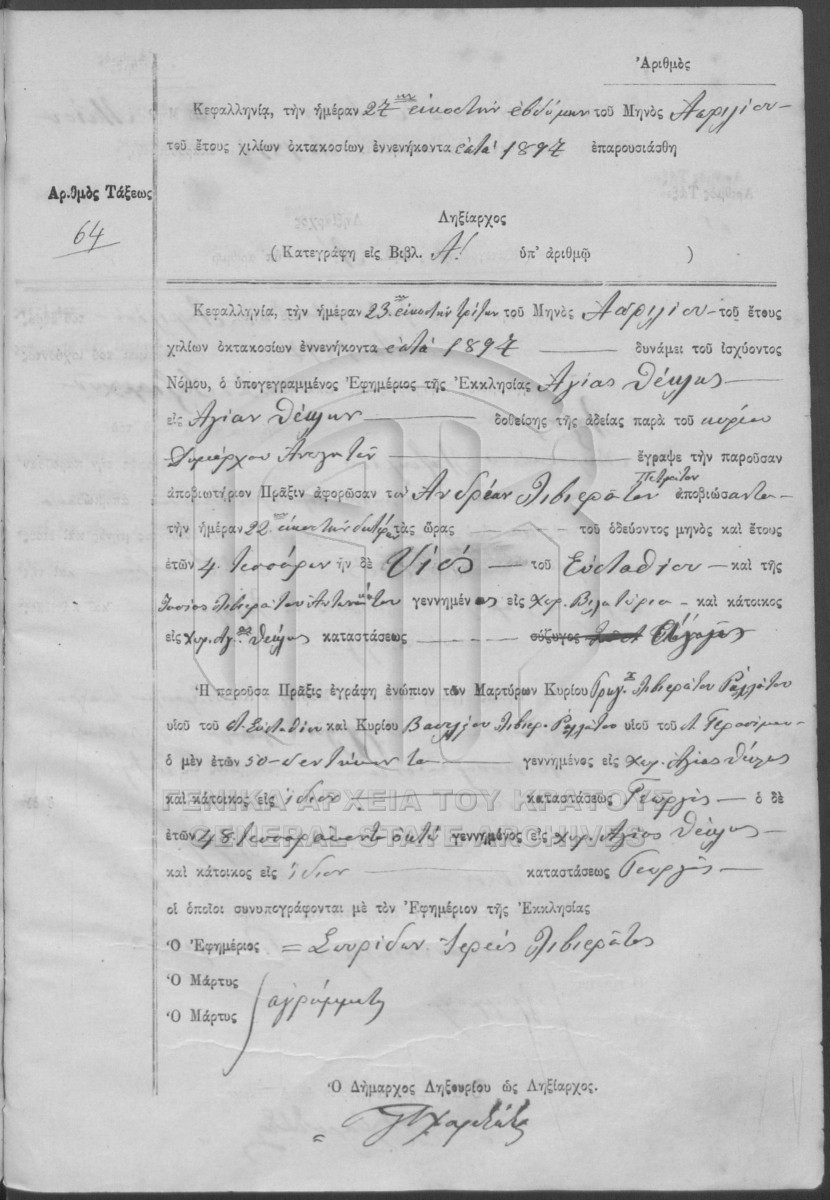 Ἀριθμὸς
Κεφαλληνίᾳ, τὴν ἡμέραν 27ην εἰκοστὴν ἑβδόμην τοῦ Μηνὸς Ἀπριλίου
τοῦ ἔτους χιλίων ὀκτακοσίων ἐννενήκοντα ἑπτά 1897 ἐπαρουσιάσθη
Ἀριθμὸς Τάξεως
64
Ληξίαρχος
(Κατεγράφη εἰς Βιβλ. Α! ὑπ' ἀριθμῷ )
Κεφαλληνίᾳ, τὴν ἡμέραν 23ην εἰκοστὴν τρίτην τοῦ Μηνὸς Ἀπριλίου τοῦ ἔτους
χιλίων ὀκτακοσίων ἐννενήκοντα ἑπτά 1897 δυνάμει τοῦ ἰσχύοντος
Νόμου, ὁ ὑπογεγραμμένος Ἐφημέριος τῆς Ἐκκλησίας Ἁγίας Θέκλης
εἰς Ἁγίαν Θέκλην δοθείσης τῆς ἀδείας παρὰ τοῦ κυρίου
Δημάρχου Ἀνωγῆς ἔγραψε τὴν παροῦσαν
Πετράτον
ἀποβιωτήριον Πρᾶξιν ἀφορῶσαν τὸν Ἀνδρέαν Λιβιεράτον ἀποβιώσαντα
τὴν ἡμέραν 22 εἰκοστὴν δευτέραν τὰς ὥρας τοῦ ὁδεύοντος μηνὸς καὶ ἔτους
ἐτῶν 4 τεσσάρων ἦν δὲ Υἱός τοῦ Εὐσταθίου καὶ τῆς
Λιβιεράτου γεννημένος εἰς χωρ. καὶ κάτοικος
εἰς χωρ. Ἁγίας Θέκλης καταστάσεως σύζυγος
Ἡ παροῦσα Πρᾶξις ἐγράφη ἐνώπιον τῶν Μαρτύρων Κυρίου Γρηγ. Λιβιεράτου
υἱοῦ τοῦ Εὐσταθίου καὶ Κυρίου Βασιλείου Λιβιερ. υἱοῦ τοῦ Γερασίμου
ὁ μὲν ἐτῶν 50 πεντήκοντα γεννημένος εἰς χωρ. Ἁγίας Θέκλης
καὶ κάτοικος εἰς ἴδιον καταστάσεως Γεωργὸς ὁ δὲ
ΓΕΝΙΚΑ ΑΡΧΕΙΑ ΤΟΥ ΚΡΑΤΟΥΣ
ἐτῶν 48 τεσσαράκοντα ὀκτώ γεννημένος εἰς χωρ. Ἁγίας Θέκλης
GENERAL STATE ARCHIVES
καὶ κάτοικος εἰς ἴδιον καταστάσεως Γεωργὸς
οἱ ὁποῖοι συνυπογράφονται μὲ τὸν Ἐφημέριον τῆς Ἐκκλησίας
Ὁ Ἐφημέριος = Σπυρίδων Ἱερεύς Λιβιεράτος
Ὁ Μάρτυς
ἀγράμματοι
Ὁ Μάρτυς
Ὁ Δήμαρχος Ληξουρίου ὡς Ληξίαρχος.